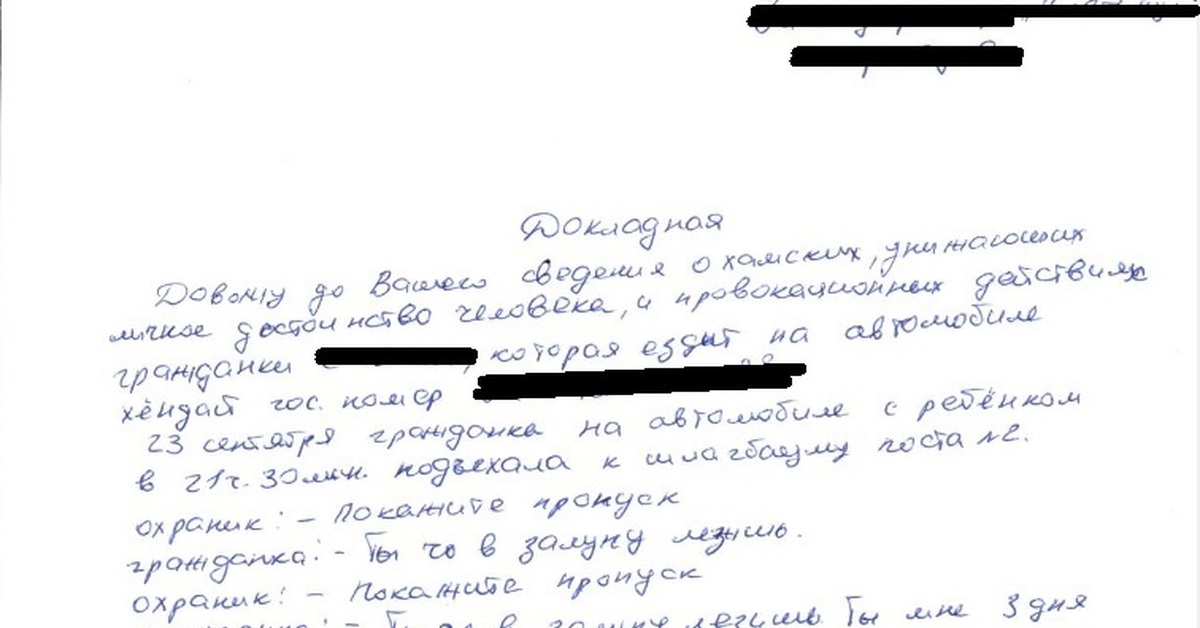 Докладная
Довожу до Вашего сведения о хамских, унижающих
личное достоинство человека, и провокационных действиях
гражданки которая ездит на автомобиле
хёндай гос. номер
23 сентября гражданка на автомобиле с ребёнком
в 21ч. 30мин. подъехала к шлагбауму поста №2.
охраник: – Покажите пропуск
гражданка: – Ты чо в залупу лезишь.
охраник: – Покажите пропуск
в залупу лезишь Ты мне 3 дня